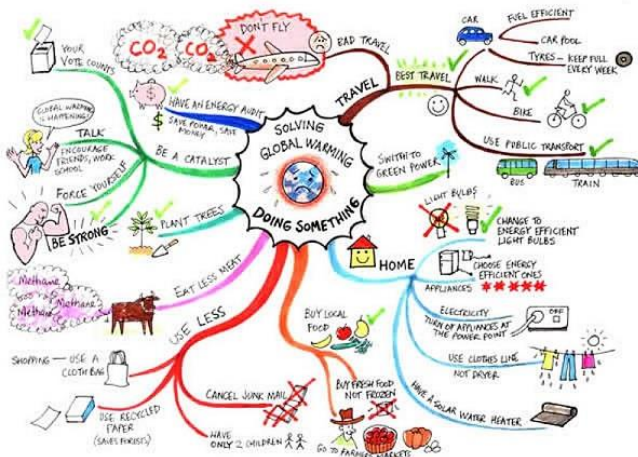 SOLVING
GLOBAL WARMING
DOING SOMETHING
TRAVEL
BAD TRAVEL
DON'T FLY
CO2
CO2
BEST TRAVEL
CAR
FUEL EFFICIENT
CAR POOL
TYRES - KEEP FULL
EVERY WEEK
WALK
BIKE
USE PUBLIC TRANSPORT
BUS
TRAIN
SWITH TO
GREEN POWER
HOME
LIGHT BULBS
CHANGE TO
ENERGY EFFICIENT
LIGHT BULBS
CHOOSE ENERGY
EFFICIENT ONES
APPLIANCES
ELECTRICITY
TURN OF APPLIANCES AT
THE POWER POINT
OFF
USE CLOTHES LINE
NOT DRYER
HAVE A SOLAR WATER HEATER
BUY LOCAL
FOOD
BUY FRESH FOOD
NOT FROZEN
GO TO FARMERS MARKETS
USE LESS
SHOPPING — USE A
CLOTH BAG
USE RECYCLED
PAPER
(SAVES FORISTS)
CANCEL JUNK MAIL
HAVE
ONLY 2 CHILDREN
EAT LESS MEAT
Methane
Methane
Methane
PLANT TREES
BE A CATALYST
YOUR
VOTE COUNTS
TALK
ENCOURAGE
FRIENDS, WORK
SCHOOL
GLOBAL WARMING
IS HAPPENING!
FORCE YOURSELF
BE STRONG
HAVE AN ENERGY AUDIT
SAVE POWER, SAVE
MONEY
$